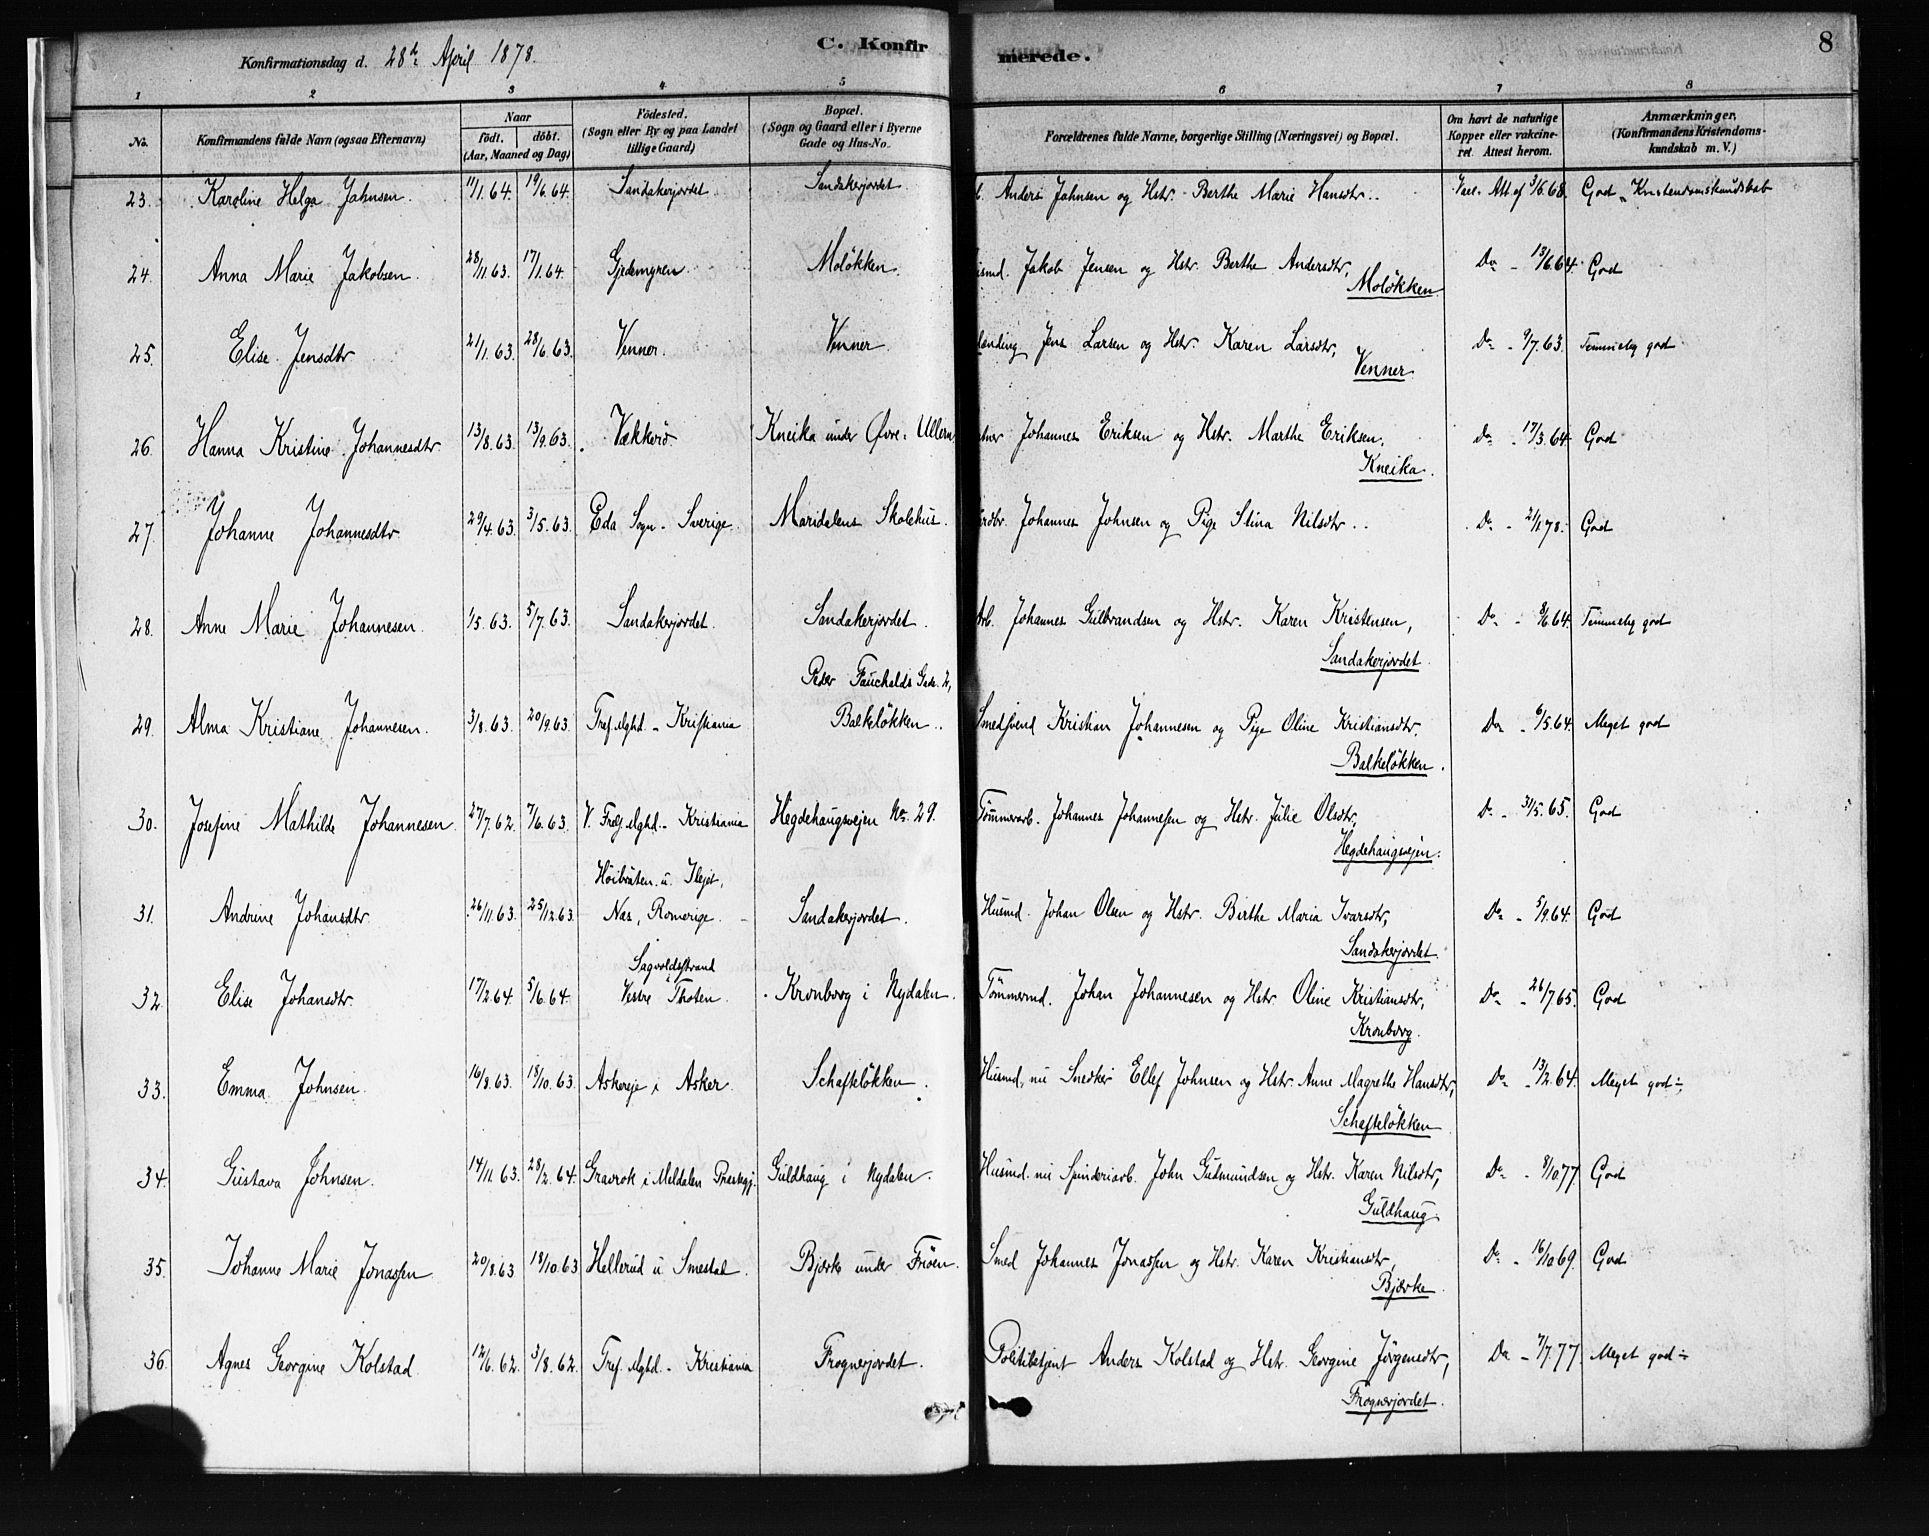 Konfirmationsdag d. 28de April 1878.
C. Konfirmerede.
8
1 2 3 4 5 6 7 8
No.
Konfirmandens fulde Navn (ogsaa Efternavn)
Naar
födt. döbt.
(Aar, Maaned og Dag)
Födested.
(Sogn eller By og paa Landet
tillige Gaard)
Bopæl.
(Sogn og Gaard eller i Byerne
Gade og Hus-No.
Forældrenes fulde Navne, borgerlige Stilling (Næringsvei) og Bopæl.
Om havt de naturlige
Kopper eller vakcine-
ret. Attest herom.
Anmærkninger.
(Konfirmandens Kristendoms-
kundskab m. V.)
23. Karoline Helga Jahnsen. 11/1.64. 19/6.64. Sandakerjordet Sandakerjordet Anders Jahnsen og Hstr. Berthe Marie Hansdtr. Vacc. Att af 3/6.68. God Kristendomskundskab
24. Anna Marie Jakobsen. 28/11.63. 17/1.64. Gjedemyren Moløkken. Jakob Jensen og Hstr. Berthe Andersdtr, Do - 13/6.64. God
Moløkken
25. Elise Jensdtr 21/1.63. 28/6.63. Venner. Venner Jens Larsen og Hstr. Karen Larsdtr, Do - 9/7.63. Temmelig god
Venner
26. Hanna Kristine Johannesdtr 13/8.63. 13/9.63. Vækkerö Kneika under Øvre Ullern Johannes Eriksen og Hstr. Marthe Eriksen, Do - 17/3.64. God
Kneika.
27. Johanne Johannesdtr 29/4.63. 3/5.63. Eda Sogn - Sverige. Maridalens Skolehus. Johannes Johnsen og Pige Stina Nilsdtr. Do - 2/1.78. God
28. Anne Marie Johannesen. 1/5.63. 5/7.63. Sandakerjordet. Sandakerjordet. Arb. Johannes Gulbrandsen og Hstr. Karen Kristensen, Do - 8/6.64. Temmelig god
Sandakerjordet
Peder Fauchalds Gade 2,
29. Alma Kristiane Johannesen. 3/8.63. 20/9.63. Tref. Mghd. - Kristiania Balkeløkken. Smedsvend Kristian Johannesen og Pige Oline Kristiansdtr. Do - 6/5.64. Meget god
Balkeløkken.
30. Josefine Mathilde Johannesen. 27/7.62. 7/6.63. V. Tref. Mghd. - Kristiania Hegdehaugsvejen No 29. Tømmerarb. Johannes Johannesen og Hstr. Julie Olsdtr, Do - 31/5.65. God
Hegdehaugsvejen.
Höibråten u.
31. Andrine Johansdtr 26/11.63. 25/12.63. Næs, Romerige. Sandakerjordet. Husmd. Johan Olsen og Hstr. Birthe Maria Ivarsdtr, Do - 5/9.64. God
Sandakerjordet.
Sagvoldstrand
32. Elise Johansdtr. 17/2.64. 5/6.64. Vestre Thoten. Kronborg i Nydalen. Tømmermd. Johan Johannesen og Hstr. Oline Kristiansdtr, Do - 26/7.65. God
Kronborg.
33. Emma Johnsen. 16/8.63. 18/10.63. Askereje i Asker. Schafteløkken. Husmd, nu Snedker Ellef Johnsen og Hstr. Anne Magrethe Hansdtr, Do - 13/2.64. Meget god
Schafteløkken
34. Gustava Johnsen. 14/11.63. 28/2.64. Gravrok i Meldalen Præstegj. Guldhaug i Nydalen. Husmd. nu Spinderiarb. John Gudmundsen og Hstr. Karen Nilsdtr, Do - 8/10.77. God
Guldhaug.
35. Johanne Marie Jonassen 20/8.63 18/10.63 Hellerud u. Smestad. Bjerke under Frøen. Smed Johannes Jonassen og Hstr. Karen Kristiansdtr, Do - 16/10.69. God
Bjerke.
36. Agnes Georgine Kolstad 12/6.62. 3/8.62. Tref. Mghd. - Kristiania Frognerjordet. Politibetjent Anders Kolstad og Hstr. Georgine Jörgensdtr, Do - 7/7.77. Meget god
Frognerjordet.